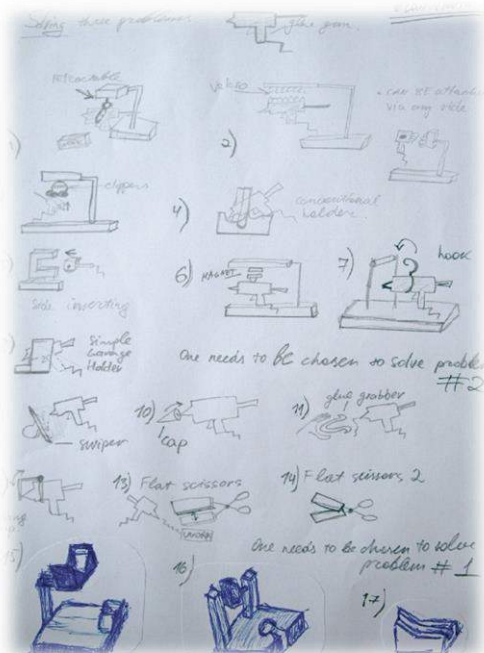 Solving three problems
glue gun.
retractable
Velcro
• can be attached
via any side
2)
clippers
4)
conventional
holder.
6)
MAGNET
7)
hook
side inverting
Simple
Garage
Holder
One needs to be chosen to solve problem
#2
swiper
10)
cap
11)
glue grabber
13) Flat scissors
14) Flat scissors 2
One needs to be chosen to solve
problem #1
15)
16)
17)